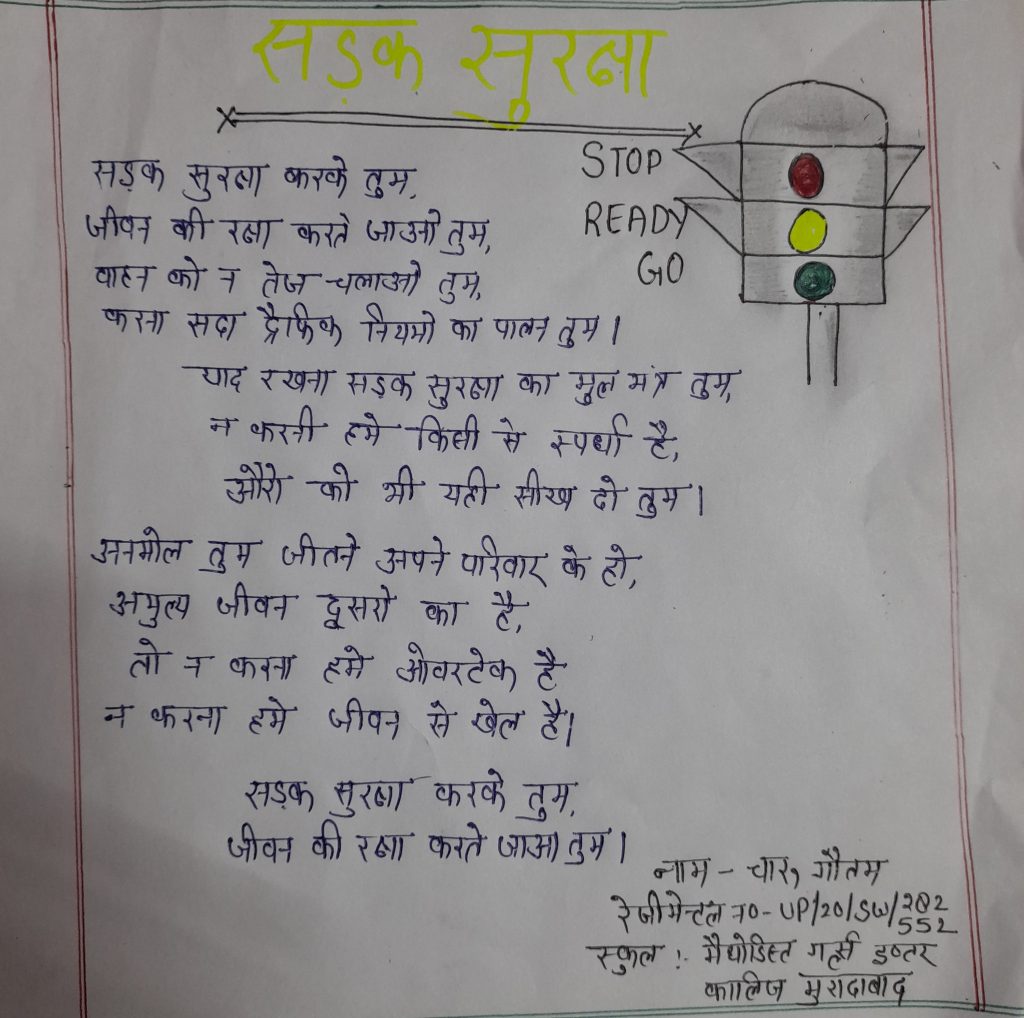 सड़क सुरक्षा
सड़क सुरक्षा करके तुम,
जीवन की रक्षा करते जाओ तुम,
वाहन को न तेज चलाओ तुम,
करना सदा ट्रैफिक नियमो का पालन तुम।
STOP
READY
GO
याद रखना सड़क सुरक्षा का मुल मंत्र तुम,
न करनी हमे किसी से स्पर्धा है,
औरो को भी यही सीख दो तुम।
अनमोल तुम जीतने अपने परिवार के हो,
अमुल्य जीवन दूसरो का है,
तो न करना हमे ओवरटेक है
न करना हमे जीवन से खेल है।
सड़क सुरक्षा करके तुम,
जीवन की रक्षा करते जाओ तुम।
नाम - चारु गौतम
रेजीमेन्टल no- UP/20/SW/282
552
स्कुल :- मैथोडिस्ट गर्ल्स इण्टर
कालिज मुरादाबाद